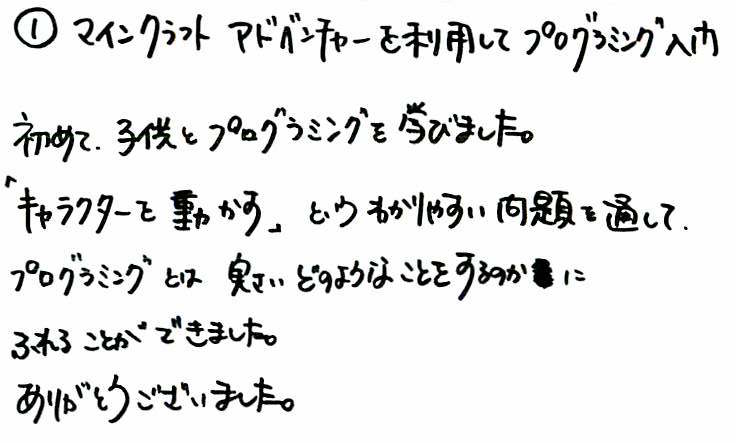 ① マインクラフト アドベンチャーを利用してプログラミング入門
初めて、子供とプログラミングを学びました。
「キャラクターを動かす」というわかりやすい問題を通して、
プログラミングとは実さいどのようなことをするのかに
ふれることができました。
ありがとうございました。